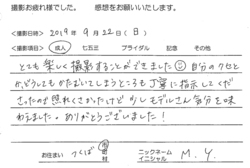 撮影お疲れ様でした。 感想をお願いいたします。
<撮影日時> 2019年 9月 22日(日)
<撮影項目> 成人 七五三 ブライダル 記念 その他
とても楽しく撮影することができました☺ 自分のクセと
か、どうしてもかたむいてしまうところも丁寧に指示してくだ
さったので照れくさかったけど 少しモデルさん気分を味
わえました。ありがとうございました!
お住まい つくば 市 ニックネーム イニシャル M.Y.